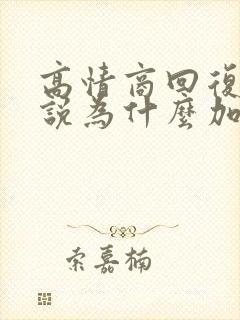 高情商回復
説為什麼加
索嘉楠